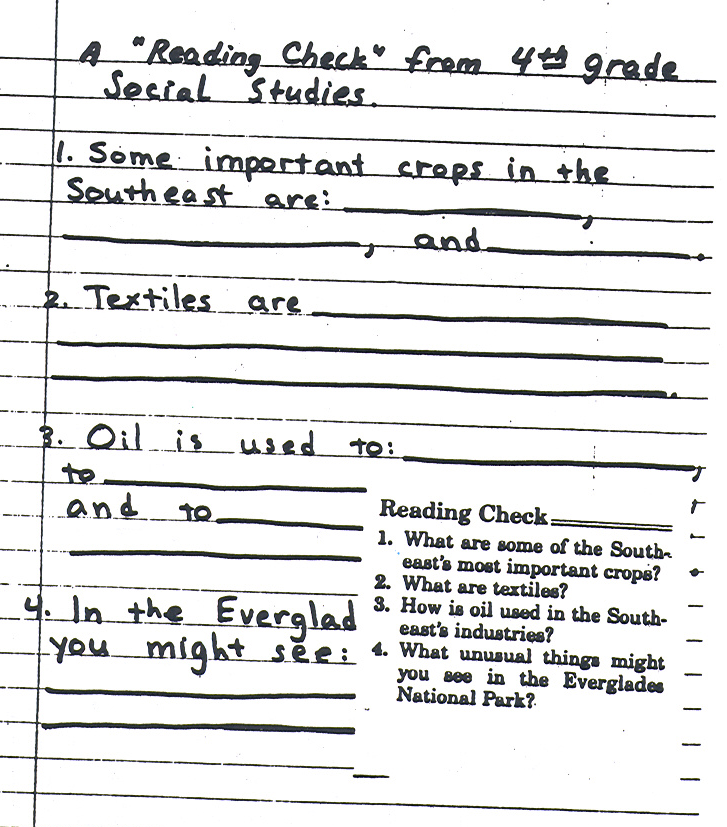 A "Reading Check" from 4th grade
Social Studies.
1. Some important crops in the
Southeast are: ,
, and .
2. Textiles are
.
3. Oil is used to: ,
to
and to
4. In the Everglad
you might see:
Reading Check
1. What are some of the South-
east's most important crops?
2. What are textiles?
3. How is oil used in the South-
east's industries?
4. What unusual things might
you see in the Everglades
National Park?